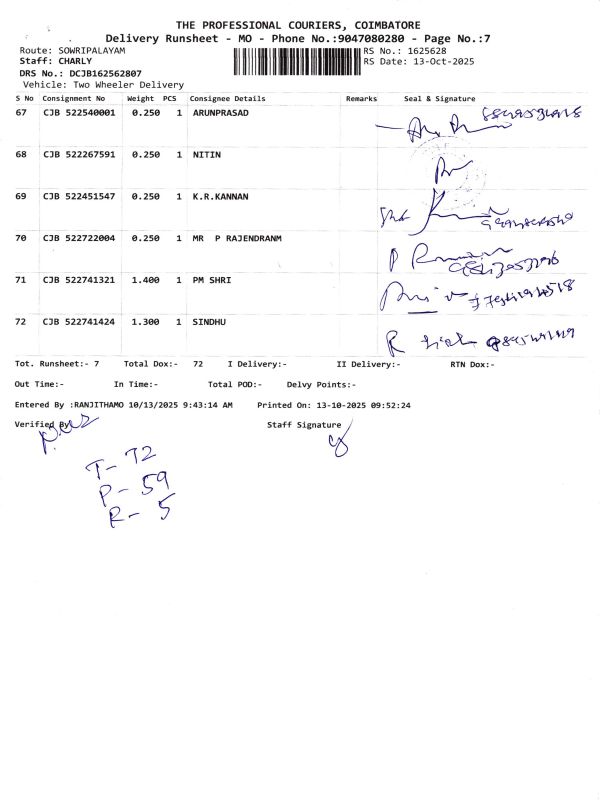 THE PROFESSIONAL COURIERS, COIMBATORE
Delivery Runsheet - MO - Phone No.:9047080280 - Page No.:7
Route: SOWRIPALAYAM RS No.: 1625628
Staff: CHARLY RS Date: 13-Oct-2025
DRS No.: DCJB162562807
Vehicle: Two Wheeler Delivery
S No Consignment No Weight PCS Consignee Details Remarks Seal & Signature
67 CJB 522540001 0.250 1 ARUNPRASAD
68 CJB 522267591 0.250 1 NITIN
69 CJB 522451547 0.250 1 K.R.KANNAN
70 CJB 522722004 0.250 1 MR P RAJENDRANM
71 CJB 522741321 1.400 1 PM SHRI
72 CJB 522741424 1.300 1 SINDHU
Tot. Runsheet:- 7 Total Dox:- 72 I Delivery:- II Delivery:- RTN Dox:-
Out Time:- In Time:- Total POD:- Delvy Points:-
Entered By :RANJITHAMO 10/13/2025 9:43:14 AM Printed On: 13-10-2025 09:52:24
Verified By Staff Signature
T- 72
P- 59
R- 5